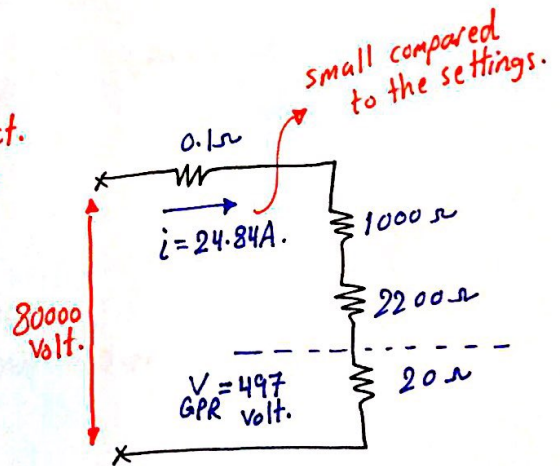 small compared
to the settings.
ct.
0.1Ω
i = 24.84A.
1000 Ω
2200 Ω
80000
volt.
V = 497
GPR volt.
20 Ω